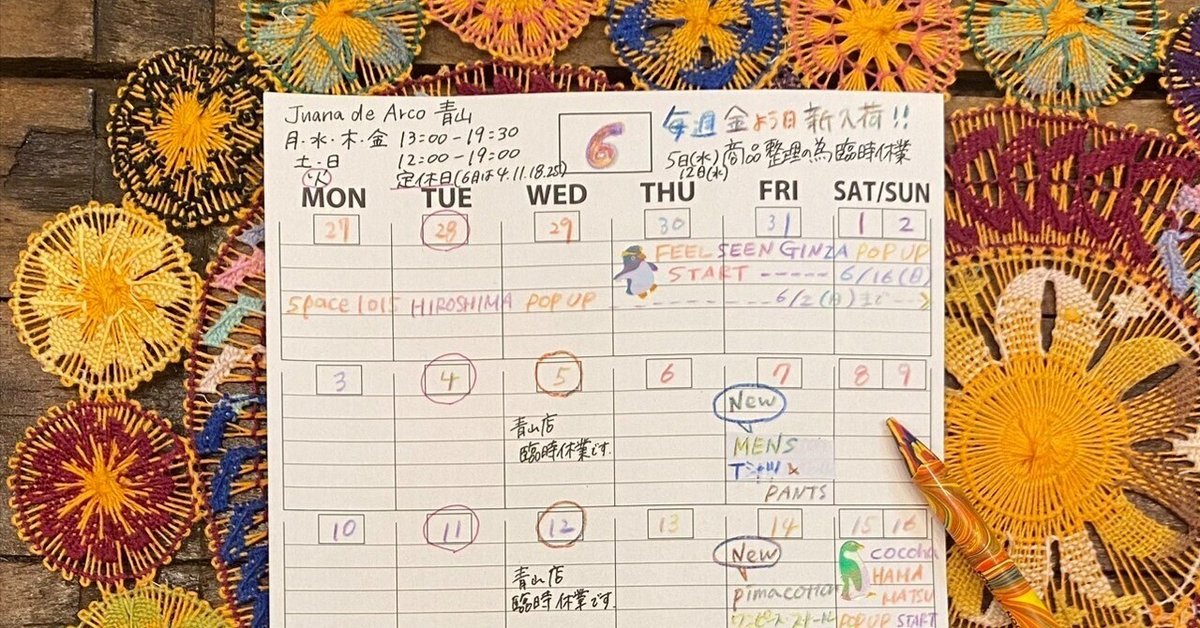 Juana de Arco 青山
月・水・木・金 13:00-19:30
土・日 12:00-19:00
(火) 定休日(6月は4.11.18.25)
6
毎週金よう日新入荷!!
5日(水) 商品整理の為臨時休業
12日(水)
MON TUE WED THU FRI SAT/SUN
27 28 29 30 31 1 2
FEEL SEEN GINZA POPUP
START ----- 6/16(日)
Space 1015 HIROSHIMA POPUP ------- 6/2(日)まで-->
3 4 5 6 7 8 9
青山店
臨時休業です.
New
MENS
Tシャツ &
PANTS
10 11 12 13 14 15 16
青山店
臨時休業です.
New
pimacotton
ワンピース・
cocoha
HAMA
MATSU
POPUP START